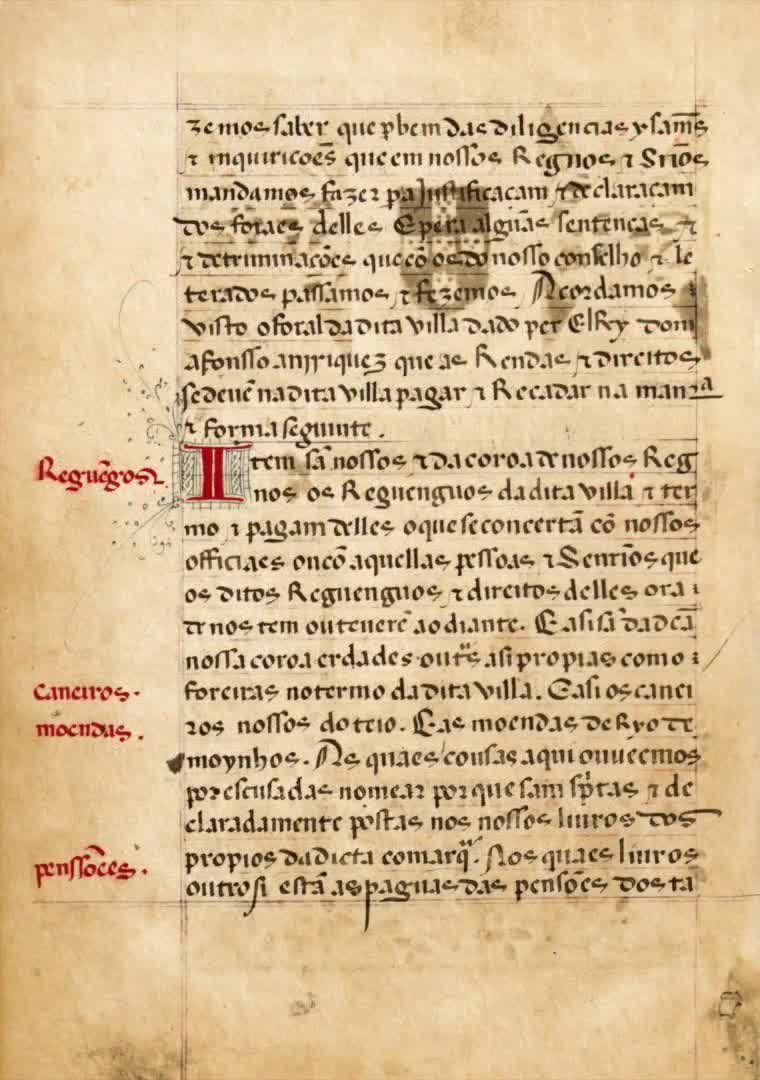 zemos saber que pbem das diligencias y sam̃s
⁊ inquiricoẽs que em nossos Regnos ⁊ Srĩos
mandamos fazer pa Justificacam ⁊ declaracam
dos foraes delles E pera algũas sentencas ⁊
⁊ detriminacões que cõ os do nosso conselho ⁊ le
terados passamos ⁊ fezemos Acordamos
visto o foral da dita villa dado per El Rey dom
afonsso anrriquez que as Rendas ⁊ direitos
se deuẽ na dita villa pagar ⁊ Recadar na manra
⁊ forma seguinte .
Reguẽgos
Item sã nossos ⁊ da coroa de nossos Reg
nos os Reguenguos da dita villa ⁊ ter
mo ⁊ pagam delles o que se concertã cõ nossos
officiaes ou cõ aquellas pessoas ⁊ Senrĩos que
os ditos Reguenguos ⁊ direitos delles ora
de nos tem ou teuerẽ ao diante . E asi sã da dcã
nossa coroa erdades outs asi propias como
caneiros .
foreiras no termo da dita villa . E asi os canei
moendas .
ros nossos do teio . E as moendas de Ryo de
moynhos . As quaes cousas aqui ouuemos
por escusadas nomear por que sam sptas ⁊ de
claradamente postas nos nossos liuros dos
penssões .
propios da dicta comarq . Nos quaes liuros
outrosi estã as paguas das pensões dos ta